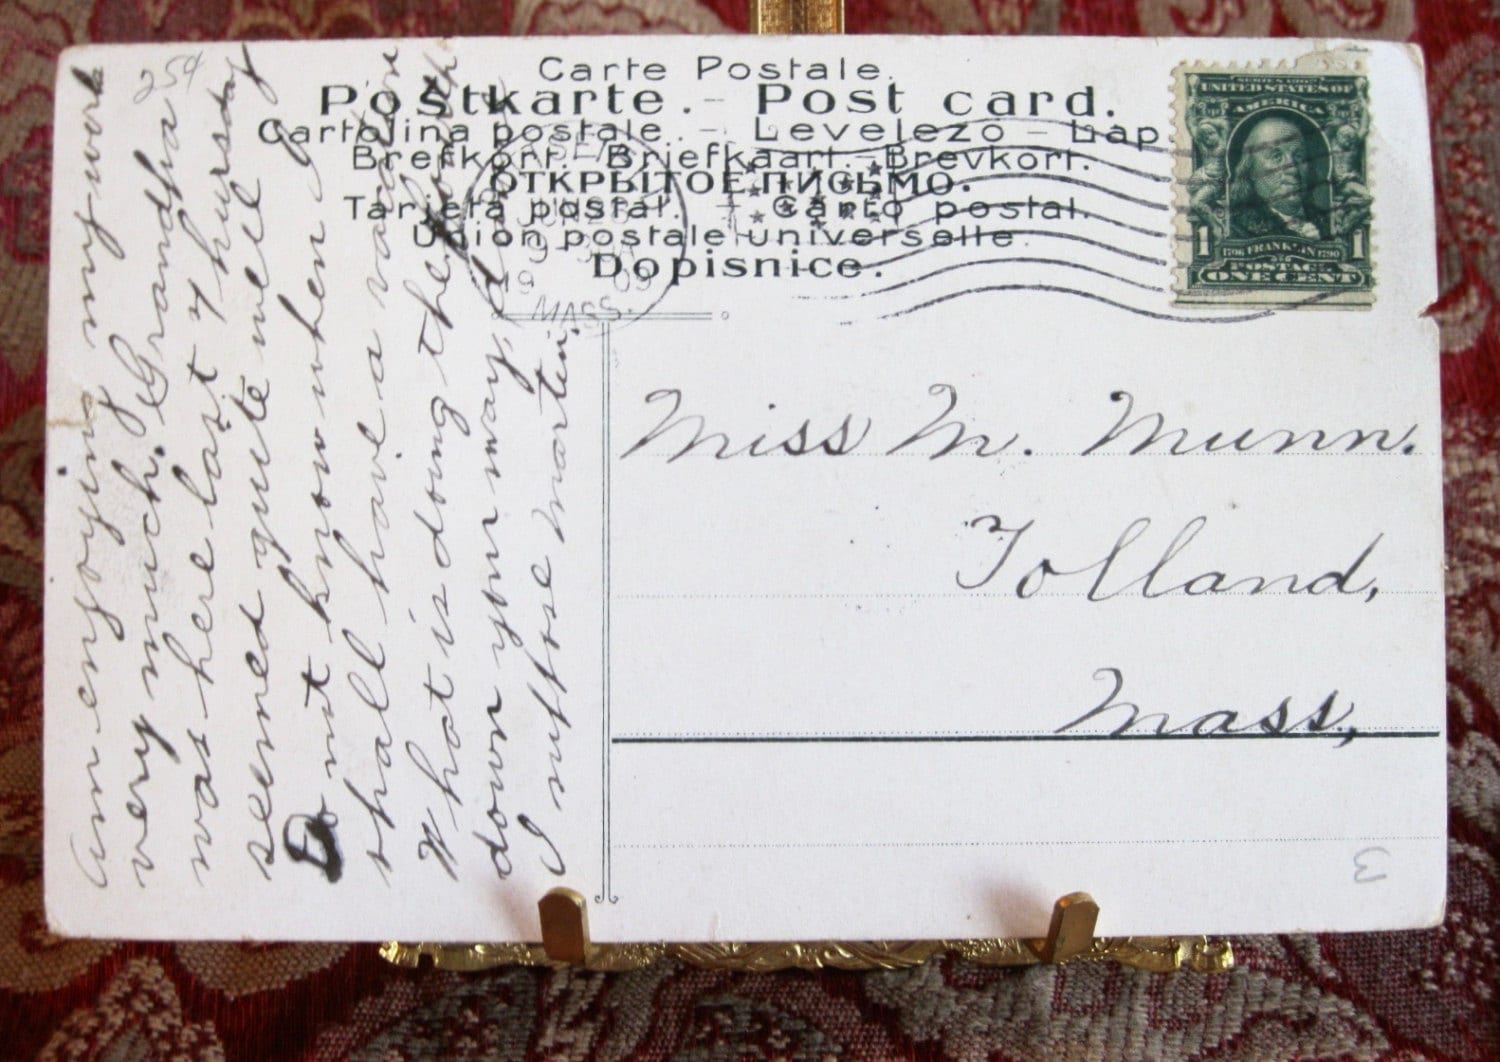 Carte Postale.
Postkarte. – Post card.
Cartolina postale. – Levelezo – Lap
Brefkort. – Briefkaart. – Brevkort.
ОТКРЫТОЕ ПИСЬМО.
Tarjeta postal. – Carto postal.
Union postale universelle.
Dopisnice.
JUN 26
19 09
MASS.
SERIES 1902
UNITED STATES OF
AMERICA
1 1
1706 FRANKLIN 1790
POSTAGE
ONE CENT
Miss M. Munn.
Tolland,
Mass,
Am enjoying my work
very much. Grandpa
was here last Thursday
seemed quite well
Do not know when I
shall have a vacation
What is doing the fourth
down your way,
I suppose Martin.
25¢
3